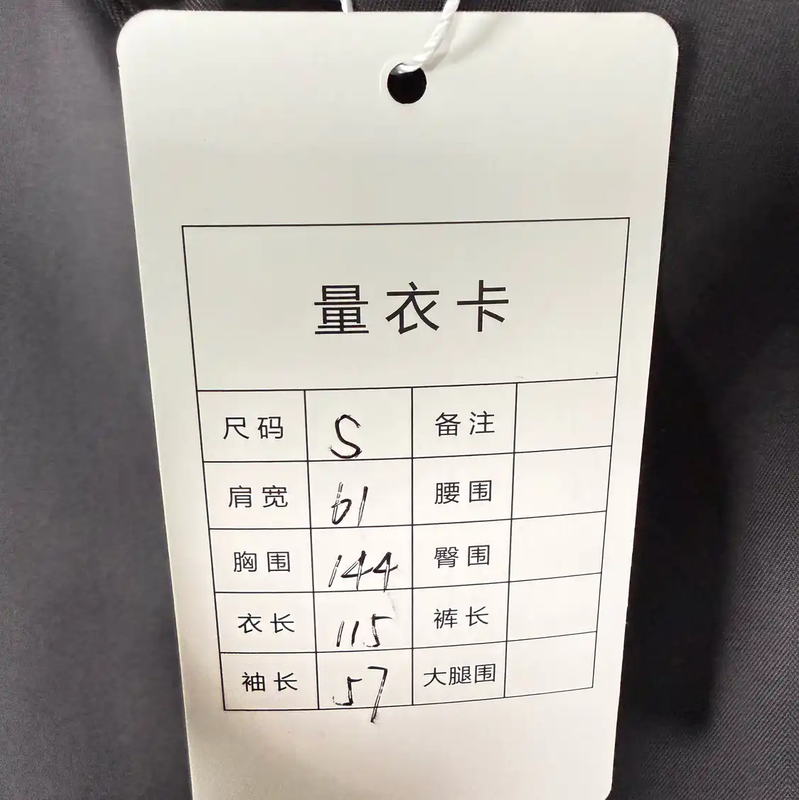 量衣卡
尺码 S 备注
肩宽 61 腰围
胸围 144 臀围
衣长 115 裤长
袖长 57 大腿围